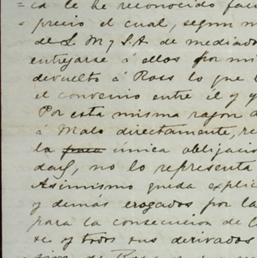 ca le he reconocido fac
precio el cual, segun m
de L. M y S.A. de mediado
entregarse á ellos por mi
devuelto á Ross lo que
el convenio entre el y y
Por esta misma razon d
á Malo directamente, re
la única obligacio
dad, no lo representa
Asimismo queda explic
y demás erogados por la
para la consecucion de
te y todos sus derivados